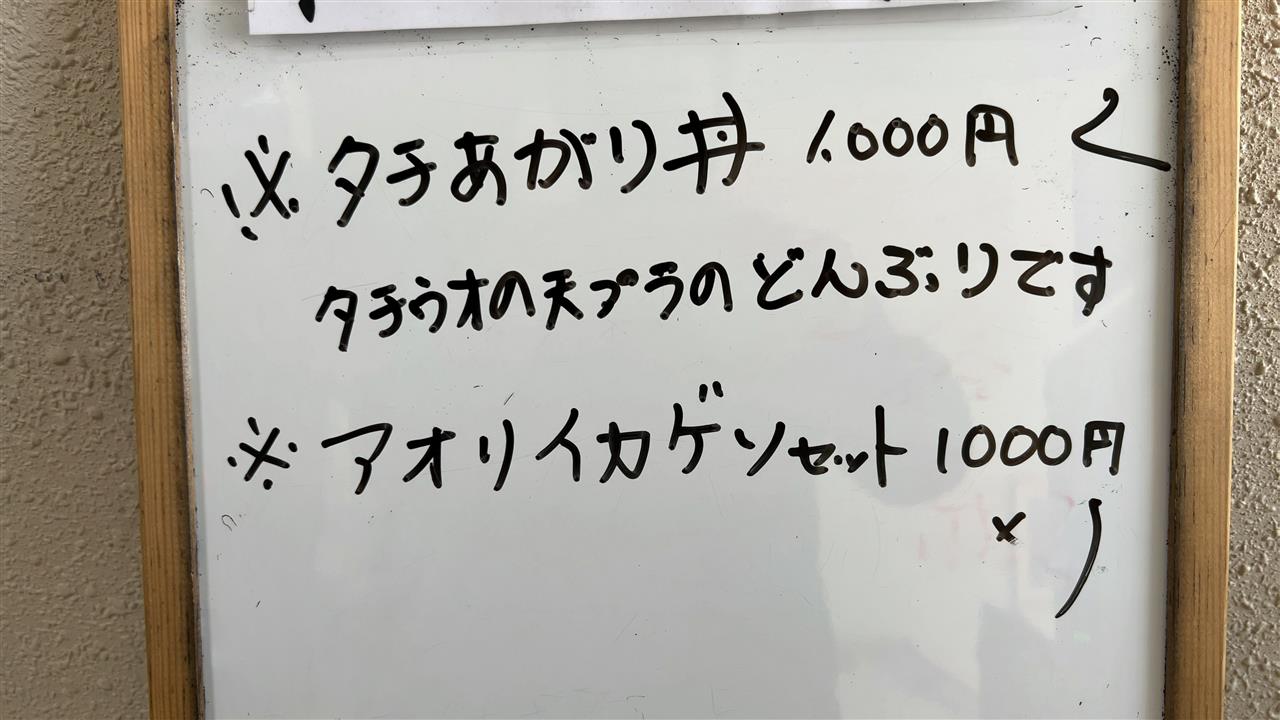 ※タチあがり丼 1.000円
タチウオの天プラのどんぶりです
※アオリイカゲソセット 1000円